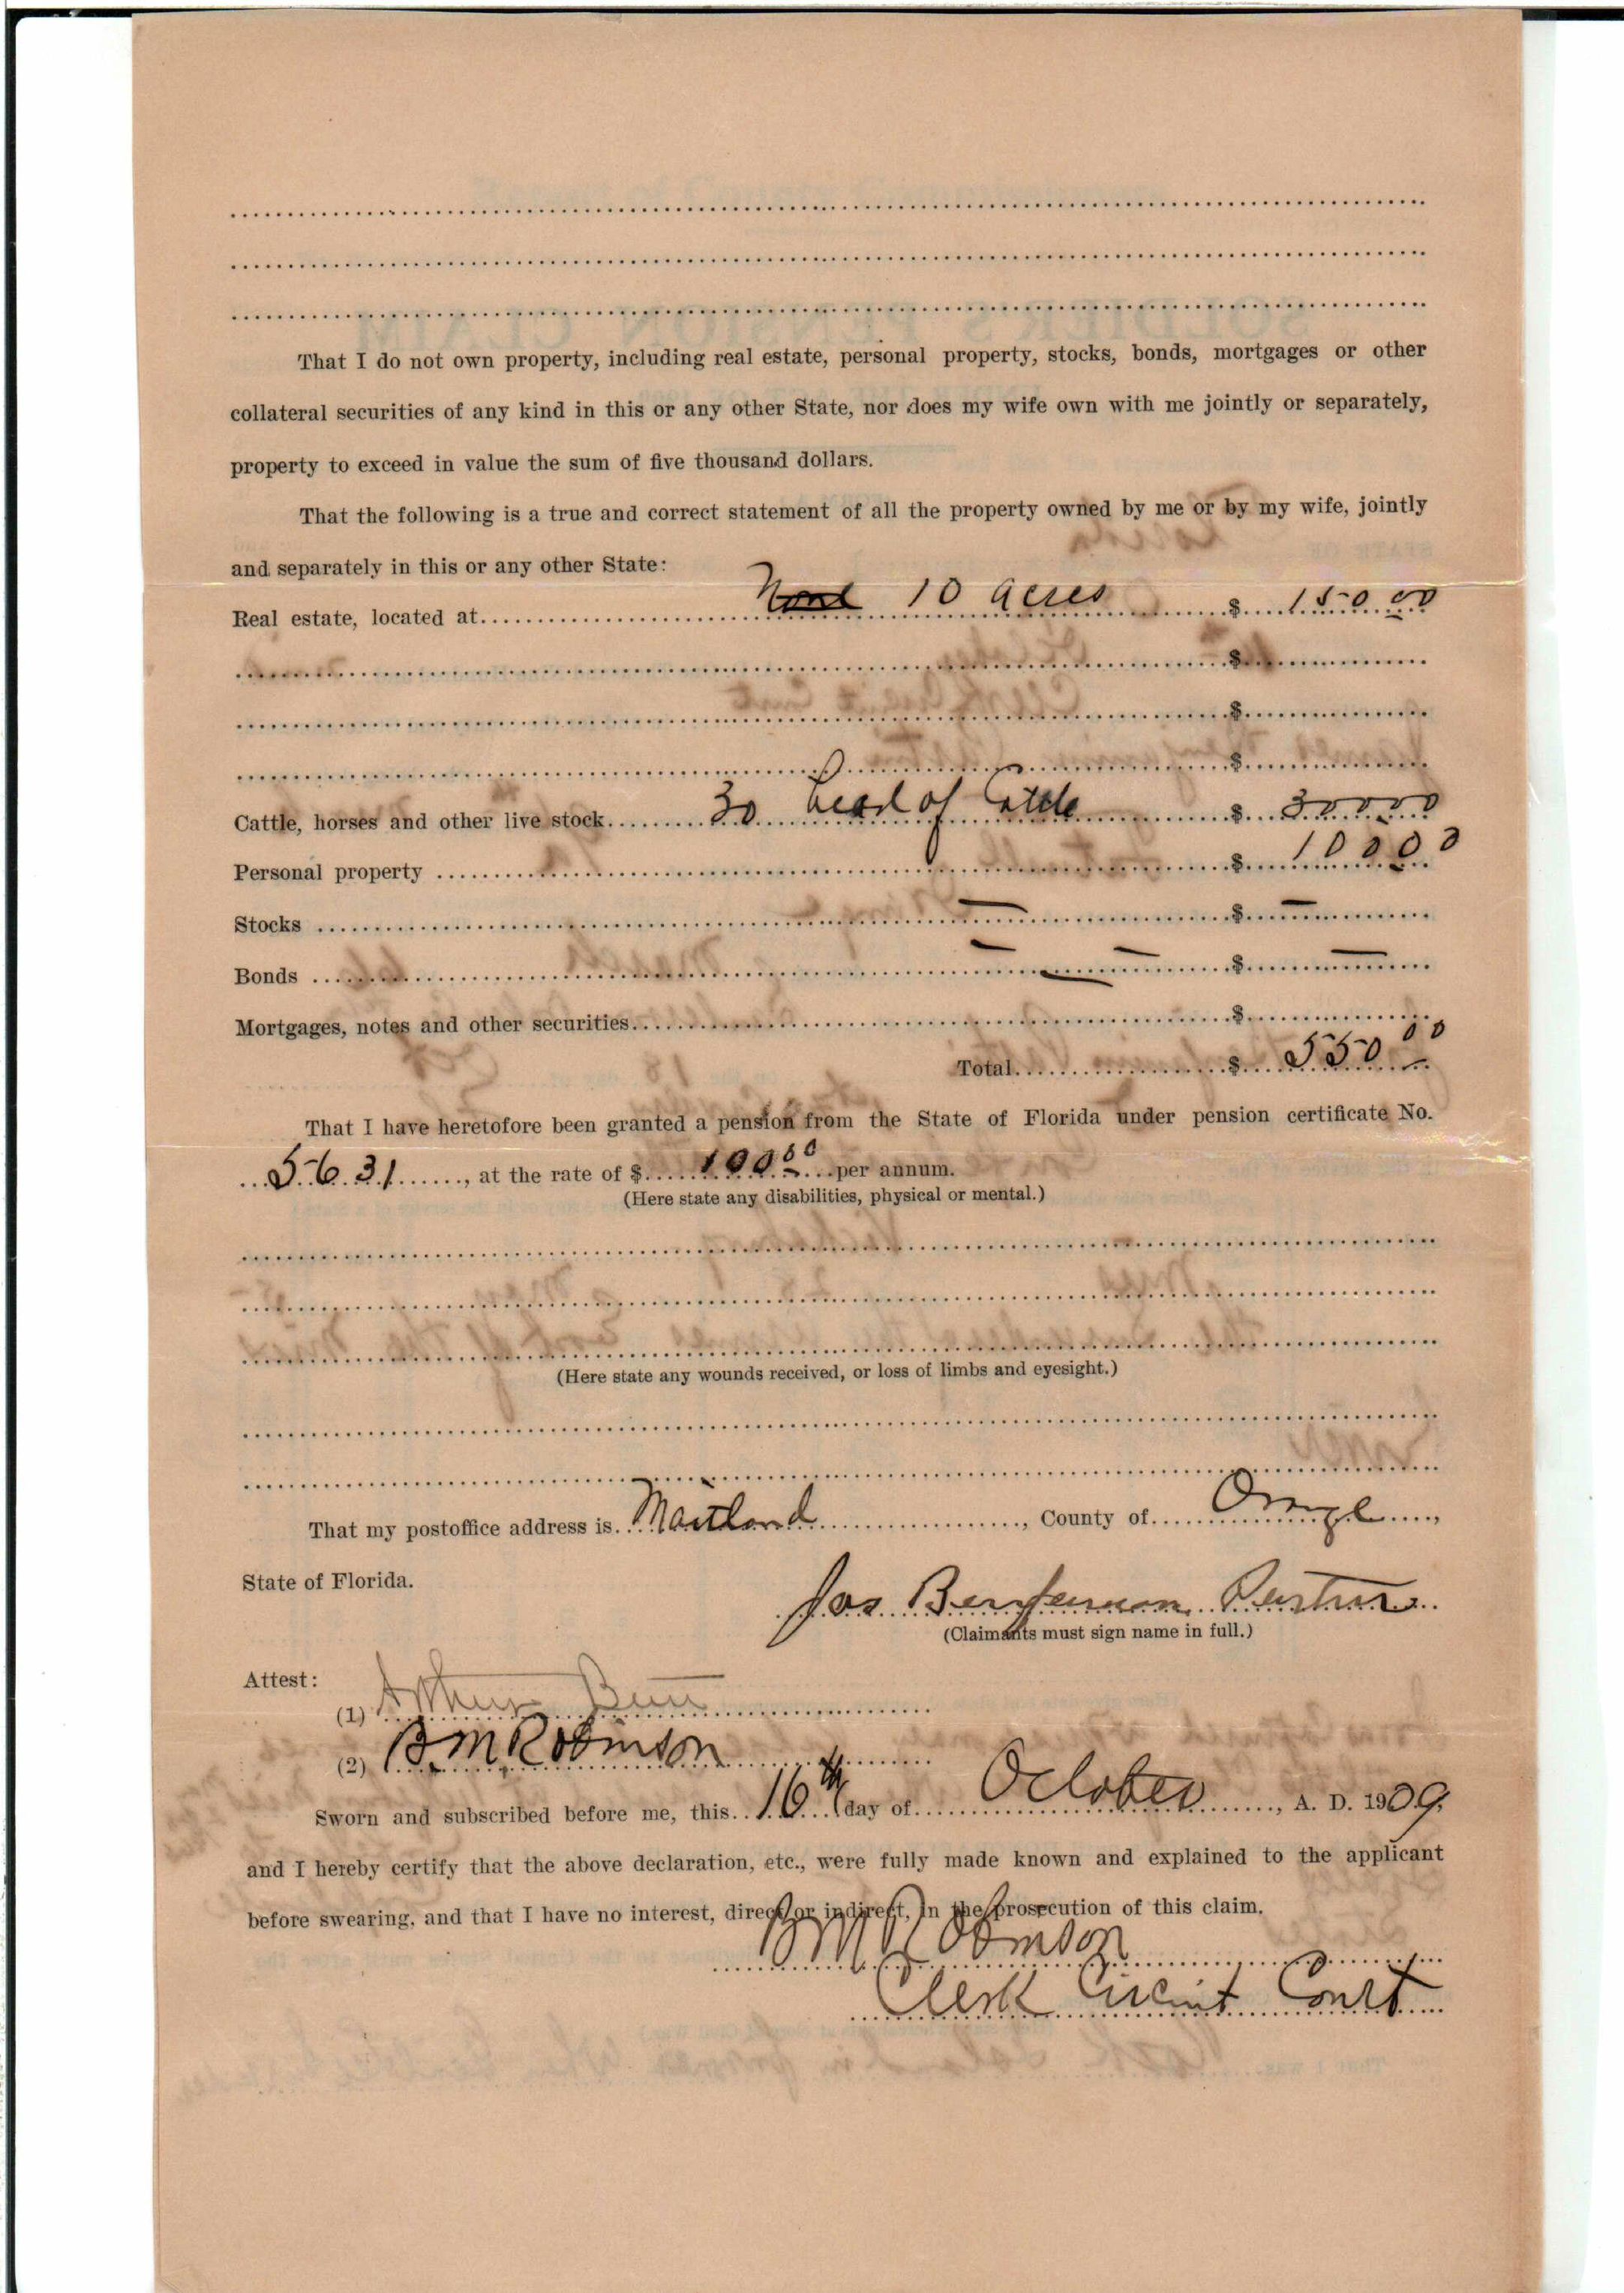 That I do not own property, including real estate, personal property, stocks, bonds, mortgages or other
collateral securities of any kind in this or any other State, nor does my wife own with me jointly or separately,
property to exceed in value the sum of five thousand dollars.
That the following is a true and correct statement of all the property owned by me or by my wife, jointly
and separately in this or any other State:
Real estate, located at 10 acres $ 150.00
$
$
$
Cattle, horses and other live stock 30 head of Cattle $ 300 00
Personal property $ 100 00
Stocks — $ —
Bonds — — $ —
Mortgages, notes and other securities — $
Total $ 550 00
That I have heretofore been granted a pension from the State of Florida under pension certificate No.
5631, at the rate of $ 100 00 per annum.
(Here state any disabilities, physical or mental.)
(Here state any wounds received, or loss of limbs and eyesight.)
That my postoffice address is Maitland, County of Orange,
State of Florida.
Jas
(Claimants must sign name in full.)
Attest:
(1) Arthur
(2) B M Robinson
Sworn and subscribed before me, this 16th day of October, A. D. 1909,
and I hereby certify that the above declaration, etc., were fully made known and explained to the applicant
before swearing, and that I have no interest, direct or indirect, in the prosecution of this claim.
B M Robinson
Clerk Circuit Court